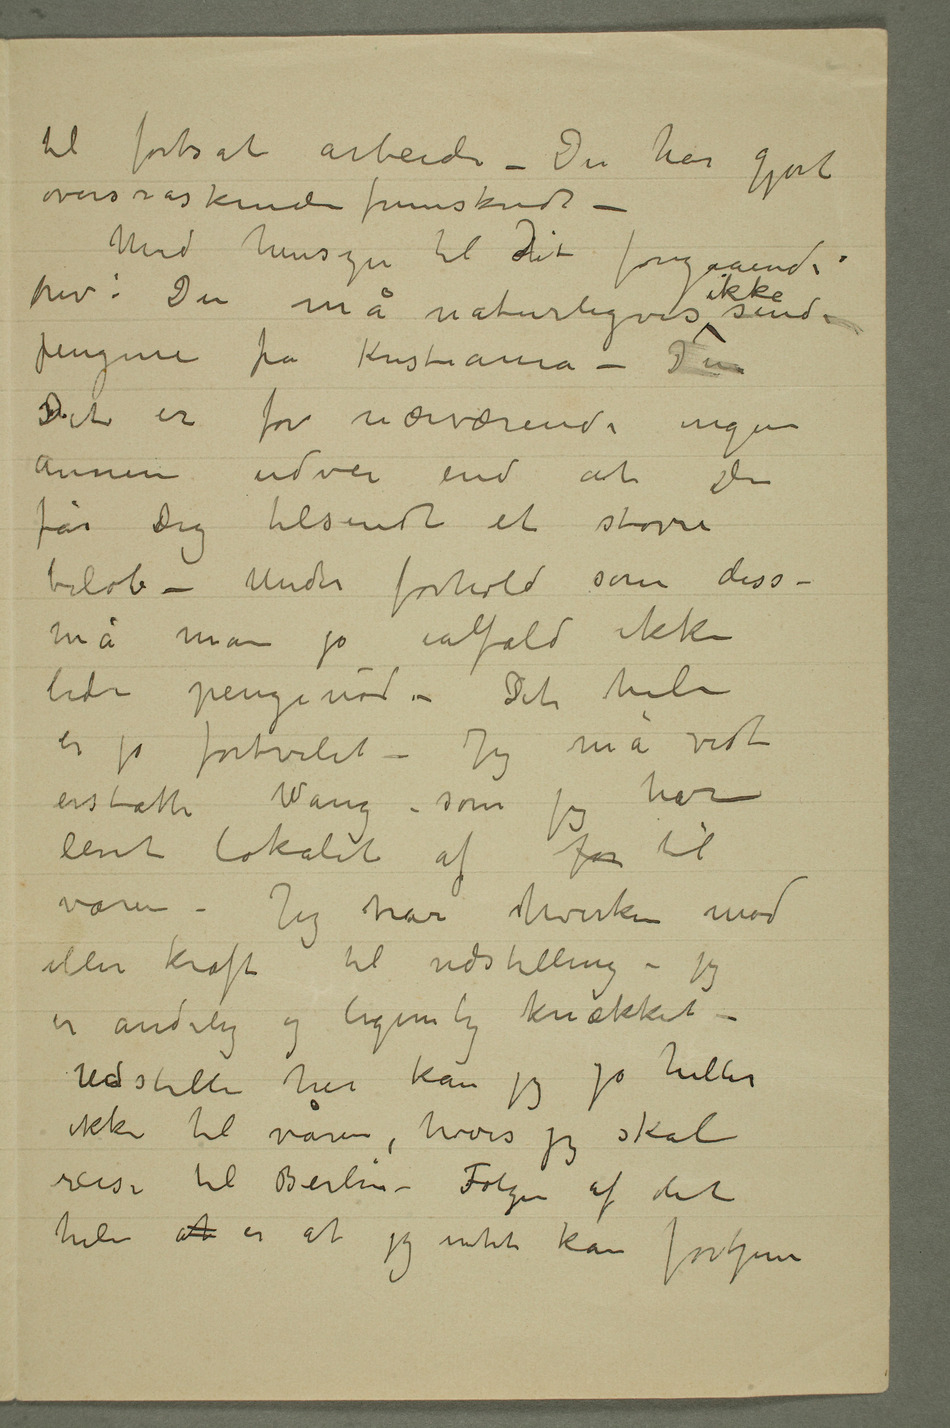 til fortsat arbeide – Du har gjort
overraskende fremskridt –
Med hensyn til Dit foregaaende
brev: Du må naturligvis ikke sende
pengene fra Kristiania –
Det er for nærværende ingen
annen udvei end at Du
får Dig tilsendt et større
beløb – Under forhold som disse
må man jo ialfald ikke
lide pengenød – Det hele
er jo fortvilet – Jeg må vist
erstatte Wang – som jeg har
leiet lokalet af for til
våren – Jeg har hverken mod
eller kraft til udstilling – jeg
er åndelig og legemlig knækket –
Udstille her kan jeg jo heller
ikke til våren, hvis jeg skal
reise til Berlin – Følgen af det
hele at er at jeg intet kan fortjene